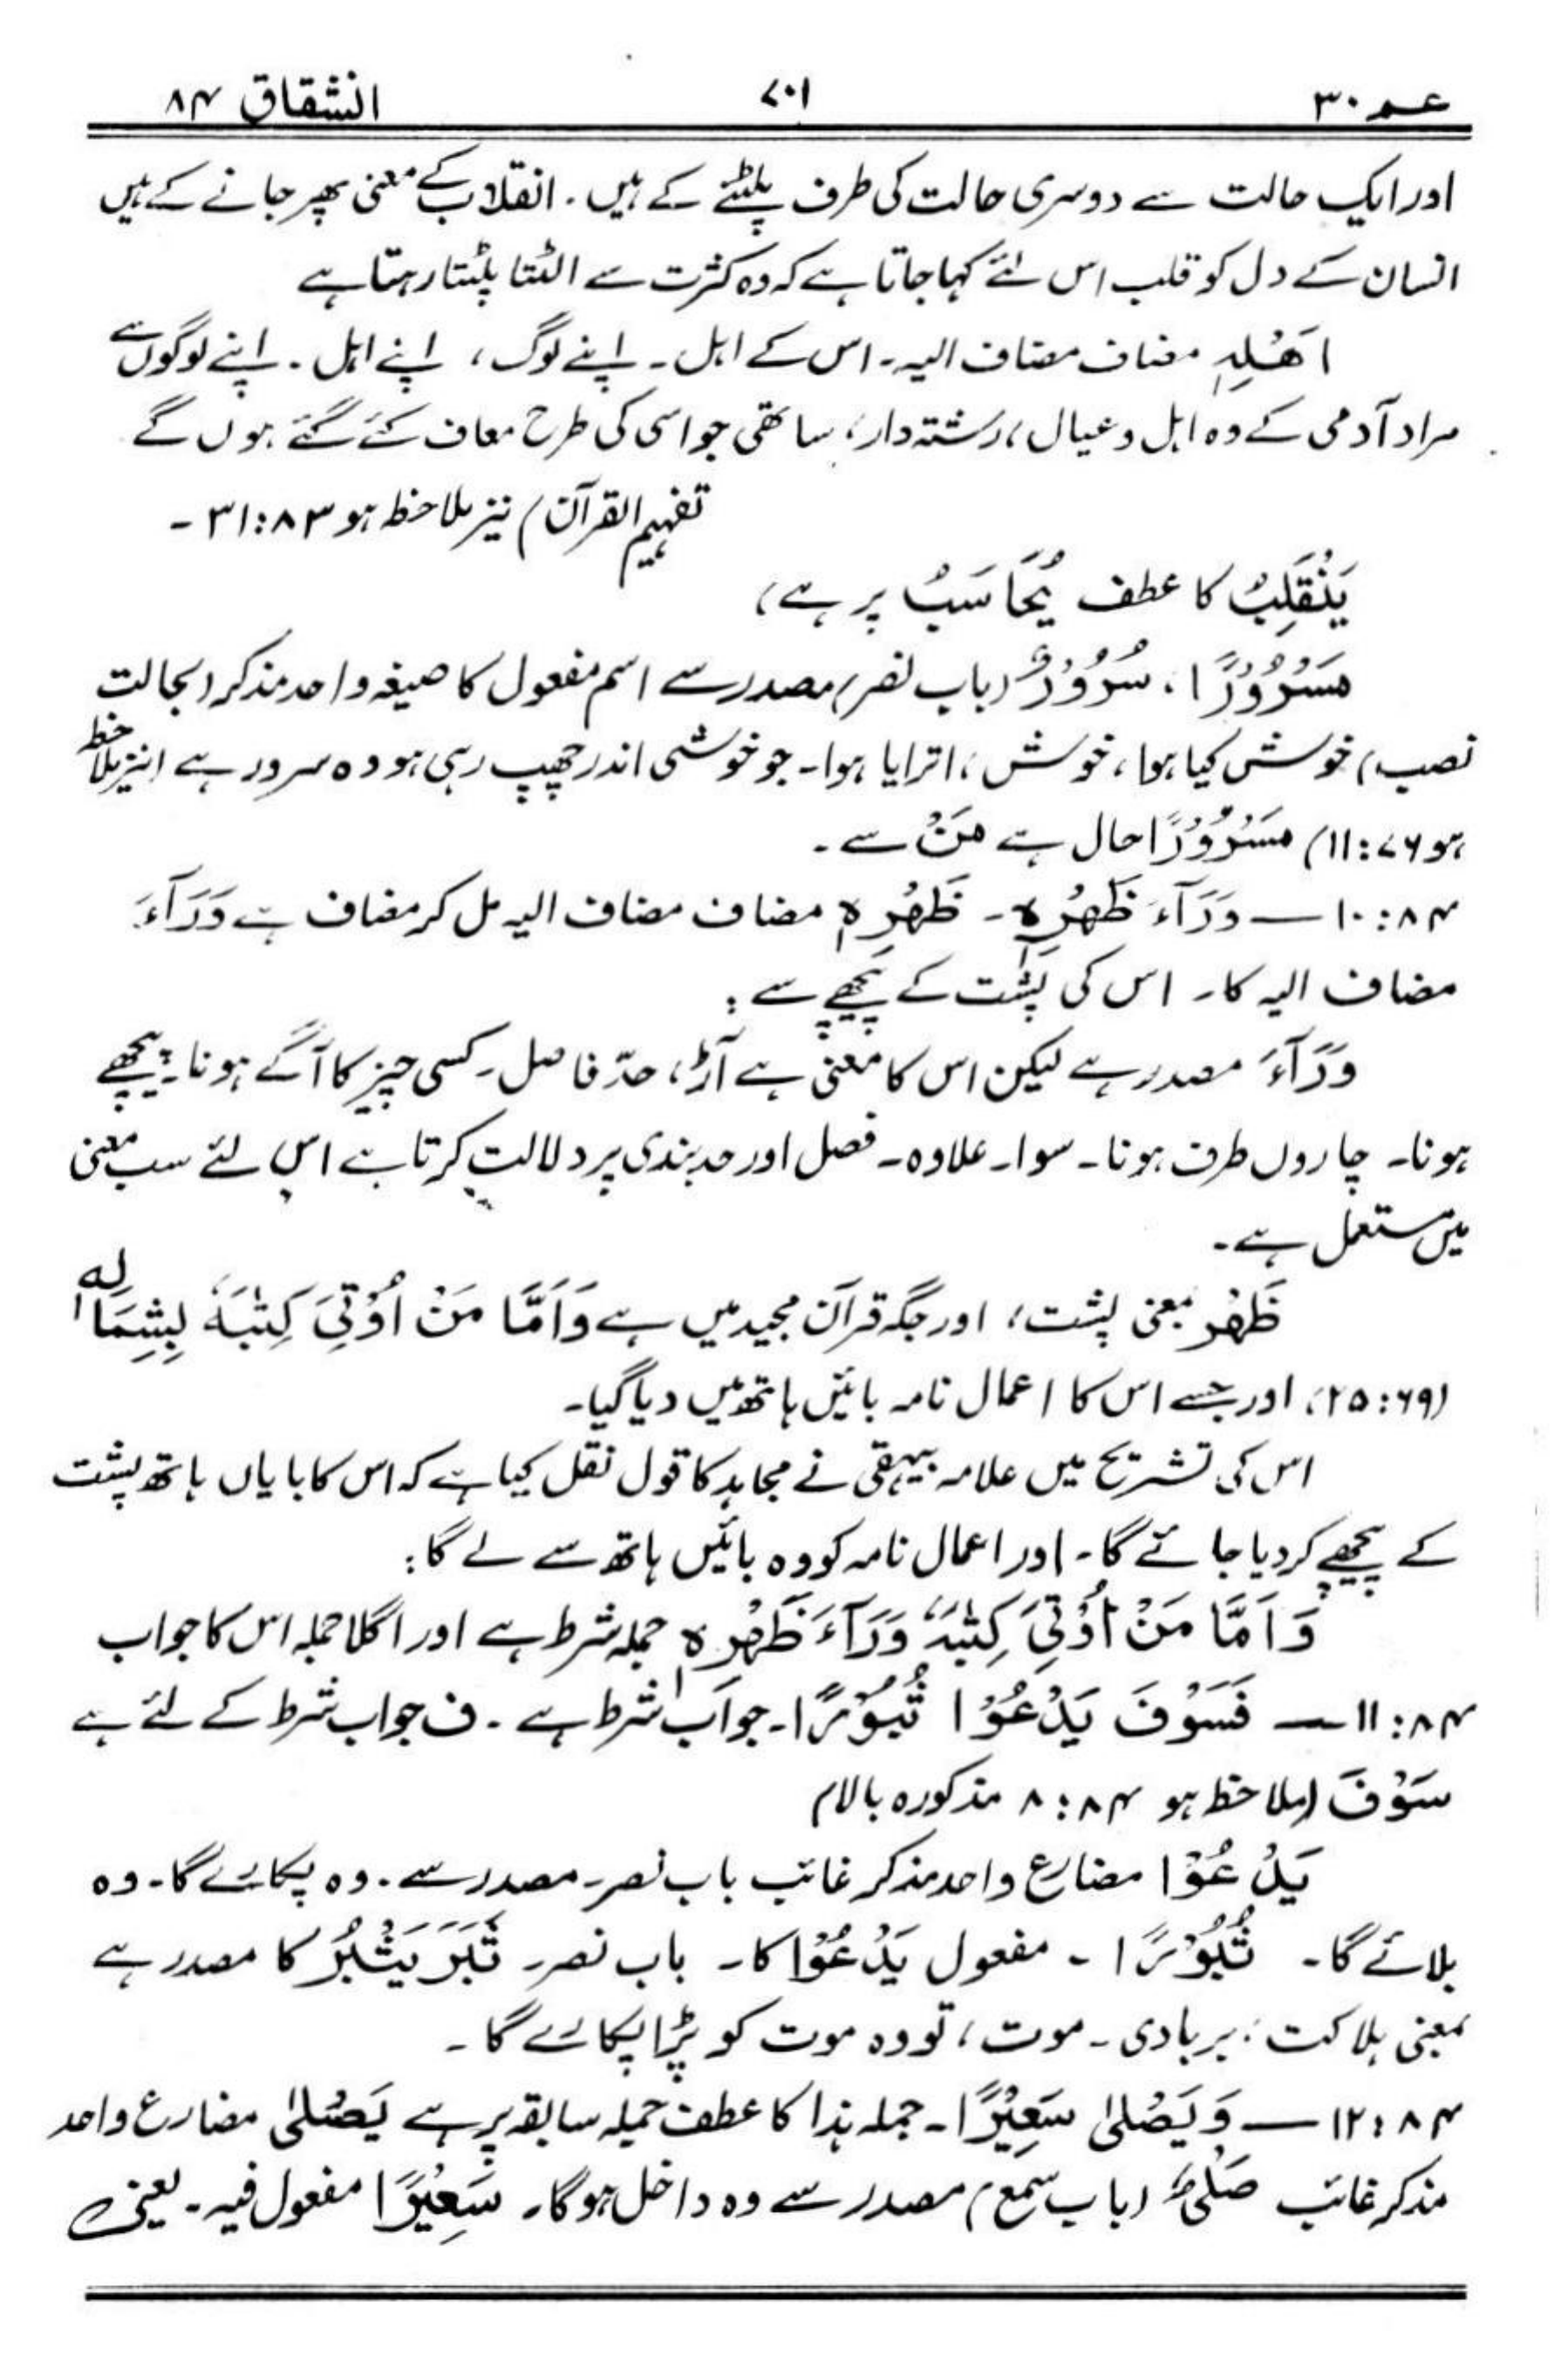 عم ۳۰ ۷۰۱ انشقاق ۸۴
اور ایک حالت سے دوسری حالت کی طرف پلٹنے کے ہیں۔ انقلاب کے معنی پھر جانے کے ہیں
انسان کے دل کو قلب اس لئے کہا جاتا ہے کہ وہ کثرت سے الٹتا پلٹتا رہتا ہے
اَھْلِہٖ مضاف مضاف الیہ۔ اس کے اہل۔ اپنے لوگ، اپنے اہل۔ اپنے لوگوں سے
مراد آدمی کے وہ اہل و عیال، رشتہ دار، ساتھی جو اسی کی طرح معاف کئے گئے ہوں گے
تفہیم القرآن) نیز ملاحظہ ہو ۸۳:۳۱۔
یَنْقَلِبُ کا عطف یُحَاسَبُ پر ہے)
مَسْرُوْرًا، سُرُوْرٌ (باب نصر) مصدر سے اسم مفعول کا صیغہ واحد مذکر (بحالت
نصب) خوش کیا ہوا، خوش، اترایا ہوا۔ جو خوشی اندر چھپ رہی ہو وہ سرور ہے (نیز ملاحظہ
ہو ۷۶:۱۱) مَسْرُوْرًا حال ہے مَنْ سے۔
۸۴:۱۰ — وَرَآءَ ظَھْرِہٖ۔ ظَھْرِہٖ مضاف مضاف الیہ مل کر مضاف ہے وَرَآءَ
مضاف الیہ کا۔ اس کی پشت کے پیچھے سے:
وَرَآءَ مصدر ہے لیکن اس کا معنی ہے آڑ، حدّ فاصل۔ کسی چیز کا آگے ہونا۔ پیچھے
ہونا۔ چاروں طرف ہونا۔ سوا۔ علاوہ۔ فصل اور حد بندی پر دلالت کرتا ہے اس لئے سب معنی
میں مستعمل ہے۔
ظَھْرِ بمعنی پشت، اور جگہ قرآن مجید میں ہے وَاَمَّا مَنْ اُوْتِیَ کِتٰبَہٗ بِشِمَالِہٖ
(۶۹:۲۵)، اور جسے اس کا اعمال نامہ بائیں ہاتھ میں دیا گیا۔
اس کی تشریح میں علامہ بیہقی نے مجاہد کا قول نقل کیا ہے کہ اس کا بایاں ہاتھ پشت
کے پیچھے کر دیا جائے گا۔ اور اعمال نامہ کو وہ بائیں ہاتھ سے لے گا:
وَاَمَّا مَنْ اُوْتِیَ کِتٰبَہٗ وَرَآءَ ظَھْرِہٖ جملہ شرط ہے اور اگلا جملہ اس کا جواب
۸۴:۱۱ — فَسَوْفَ یَدْعُوْا ثُبُوْرًا۔ جواب شرط ہے۔ ف جواب شرط کے لئے ہے
سَوْفَ (ملاحظہ ہو ۸۴:۸ مذکورہ بالا)
یَدْعُوْا مضارع واحد مذکر غائب باب نصر۔ مصدر سے۔ وہ پکارے گا۔ وہ
بلائے گا۔ ثُبُوْرًا۔ مفعول یَدْعُوْا کا۔ باب نصر۔ ثَبَرَ یَثْبُرُ کا مصدر ہے
بمعنی ہلاکت: بربادی۔ موت، تو وہ موت کو پڑا پکارے گا۔
۸۴:۱۲ — وَیَصْلٰی سَعِیْرًا۔ جملہ ہذا کا عطف جملہ سابقہ پر ہے یَصْلٰی مضارع واحد
مذکر غائب صَلْیٌ (باب سمع) مصدر سے وہ داخل ہوگا۔ سَعِیْرًا مفعول فیہ۔ یعنی